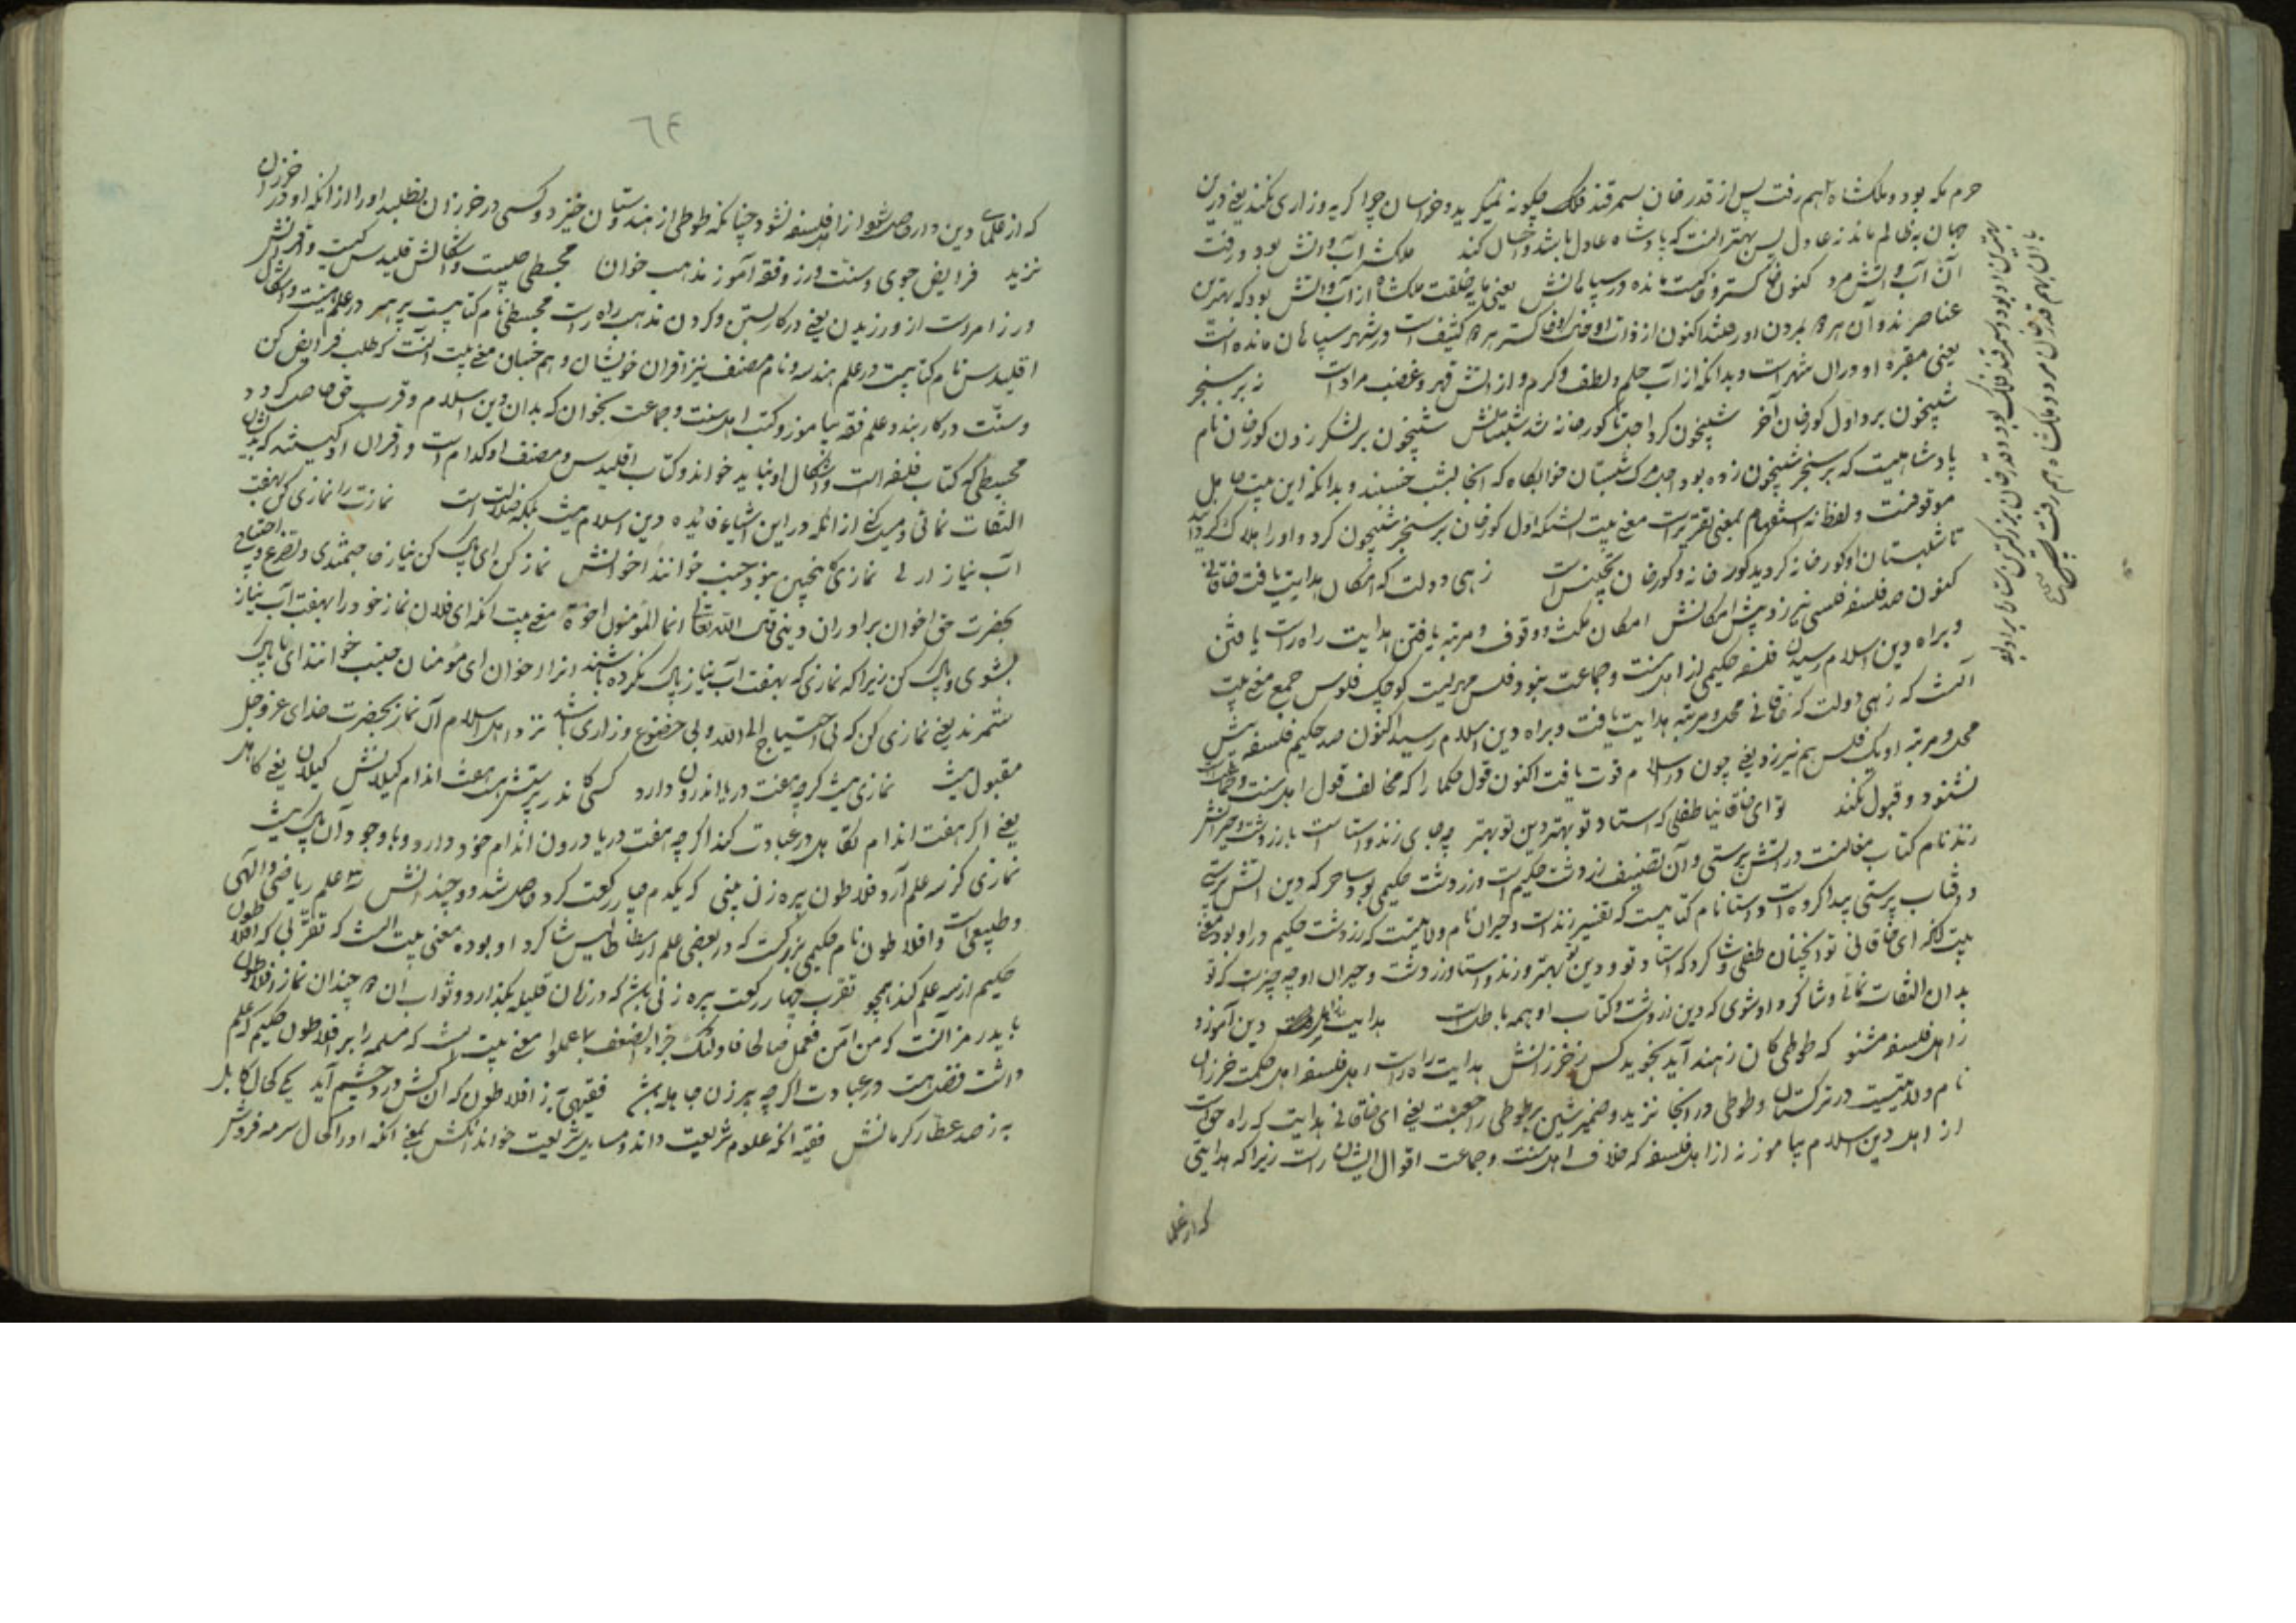 حرم مکه بود و ملکشاه هم رفت پس از قدر خان سمرقند فلک چگونه نمیگرید و خراسان چرا گریه و زاری نکند یعنی درین
جهان نه ظالم ماند نه عادل لیس بهتر آنست که پادشاه عادل باشد و احسان کند ملکشه آب و آتش بود و رفت
آن آب و آتش مرد کنون خاکستر و خاکیست مانده در سپاهانش یعنی مایه خلقت ملکشاه از آب و آتش بود که بهترین
عناصرند و آن هر ۲ بمردن او رفتند اکنون از ذات او خاک و خاکستر هر ۲ کثیف است در شهر سپاهان مانده است
یعنی مقبره او در آن شهر است و بدانکه از آب حلم و لطف و کرم و از آتش قهر و غضب مراد است نه بر سنجر
شبیخون برد اول کورخان آخر شبیخون کرد اجل تا کورخانه شد شبستانش شبیخون بر لشکر زدن کورخان نام
پادشاهیست که بر سنجر شبیخون زده بود اجل مرگ شبستان خوابگاه که آنجا بشب خسپند و بدانکه این بیت ما قبل
موقوفست و لفظ نه استفهام بمعنی تقریرست معنی بیت آنستکه اول کورخان بر سنجر شبیخون کرد و او را هلاک گردانید
تا شبستان او کورخانه گردید کورخانه و کورخان تجنیس است زهی دولت که امکان هدایت یافت خاقانی
کنون صد فلسفی فلسی نیرزد پیش امکانش امکان مکنت و وقوف و مرتبه یافتن هدایت راه راست یافتن
و براه دین اسلام رسیدن فلسفه حکیمی از اهل سنت و جماعت نبود و فلس مهریست کوچک فلوس جمع معنی بیت
آنست که زهی دولت که خاقانی محل و مرتبه هدایت یافت و براه دین اسلام رسید اکنون صد حکیم فلسفه پیش
محل و مرتبه او یک فلس هم نیرزد یعنی چون در اسلام قوت یافت اکنون قول حکما را که مخالف قول اهل سنت و جماعت
نشنود و قبول نکند تو ای خاقانیا طفلی که استاد تو بهتر دین تو بهتر چه جای زند و استا است با زردشت و حیرانش
زند نام کتاب مغانست در آتش پرستی و آن تصنیف زردشت حکیم است و زردشت حکیمی بود ساحر که دین آتش پرستی
و آفتاب پرستی پیدا کرده است و استا نام کتابیست که تفسیر زند است و حیران نام ولایتیست که زردشت حکیم در او بود معنی
بیت آنکه ای خاقانی تو آنچنان طفلی و شاگرد که استاد تو و دین تو بهتر و زند و استا و زردشت و حیران او چه چیزست که تو
بدان التفات نمائی و شاگرد او شوی که دین زردشت و کتاب او همه باطلست هدایت ز اهل دین آموز و
ز اهل فلسفه مشنو که طوطی کان ز هند آید نجوید کس ز خزرانش هدایت راه راست اهل فلسفه اهل حکمت خرزان
نام ولایتیست در ترکستان و طوطی در آنجا نزید و ضمیر شین بر طوطی راجعست یعنی ای خاقانی هدایت که راه حق است
از اهل دین اسلام بیاموز نه از اهل فلسفه که خلاف اهل سنت و جماعت اقوال ایشان راست زیرا که هدایتی
که از علما
بهترین او بود و سمرقند فلک بود و قدر خان بزرگترین ستارها بر او بود
با آن بهم قدر خان مرد و ملکشاه هم رفت
۶۴
که از علمای دین دارد حاصل شود از اهل فلسفه نشود چنانکه طوطی از هندوستان خیزد و کسی در خرزان نطلبد او را از آنکه او در خرزان
نزید فرایض جوی و سنت ورز و فقه آموز مذهب خوان مجسطی چیست و اشکالش قلیدس کیست و اقرانش
ورز امرست از ورزیدن یعنی در کار بستن و کردن مذهب راه راست مجسطی نام کتابیست پر هنر در علم هیئت و اشکال
اقلیدس نام کتابیست در علم هندسه و نام مصنف نیز اقران خویشان و هم جنسان معنی بیت آنست که طلب فرایض کن
و سنت در کار بند و علم فقه بیاموز و کتب اهل سنت و جماعت بخوان که بدان دین اسلام و قرب حق حاصل گردد
مجسطی که کتاب فلسفه است و اشکال او نباید خواند و کتاب اقلیدس و مصنف او کدام است و اقران او کیستند که بدیشان
التفات نمائی و میل کنی از آنکه در این اشیا فایده دین اسلام نیست بلکه ضلالت است نمازت را نمازی کن بهفت
آب نیاز ار نی نمازی کاینچنین نبود جنب خوانند اخوانش نماز کن ای پاک کن نیاز حاجتمندی و تضرع و احتیاج
بحضرت حق اخوان برادران دینی قال الله تعالی انما المؤمنون اخوة معنی بیت آنکه ای فلان نماز خود را بهفت آب نیاز
بشوی و پاک کن زیرا که نمازی که بهفت آب نیاز پاک نکرده باشند آنرا اخوان ای مؤمنان جنب خوانند ای ناپاک
شمرند یعنی نمازی کن که بی احتیاج الی الله و بی خضوع و زاری باشد نزد اهل اسلام آن نماز بحضرت خدای عز و جل
مقبول نیست نمازی نیست گرچه هفت دریا اندرون دارد کسی کاندر پرستش هست هفت اندام کیلانش کیلان یعنی کاهل
یعنی اگر هفت اندام تکاهل در عبادت کند اگرچه هفت دریا درون اندام خود دارد و با وجود آن پاک نیست
نمازی کز سه علم آرد فلاطون پیرزن بینی که یکدم چار رکعت کرد و حاصل شد دو چندانش سه علم ریاضی و الهی
و طبیعی است و افلاطون نام حکیمی بزرگست که در بعضی علم ارسطاطالیس شاگرد او بوده معنی بیت آنست که تقربی که افلاطون
حکیم از سه علم کند همچو تقرب چهار رکعت پیرزنی باشد که در زمان قلیله بگذارد و ثواب آن ۲ چندان نماز افلاطون
بابد رمز آنست که من آمن فعمل صالحا فاولئک جزاء الضعف بما عملوا معنی بیت آنست که مسلمه را بر افلاطون حکیم که علم
داشت فضل هست در عبادت اگرچه پیرزن جاهله باشد فقیهی به ز افلاطون که آن کش درد چشم آید یکی کحال کابل
به ز صد عطار کرمانش فقیه آنکه علوم شریعت داند و مسایل شریعت خواند آنکش بمعنی آنکه او را کحال سرمه فروش